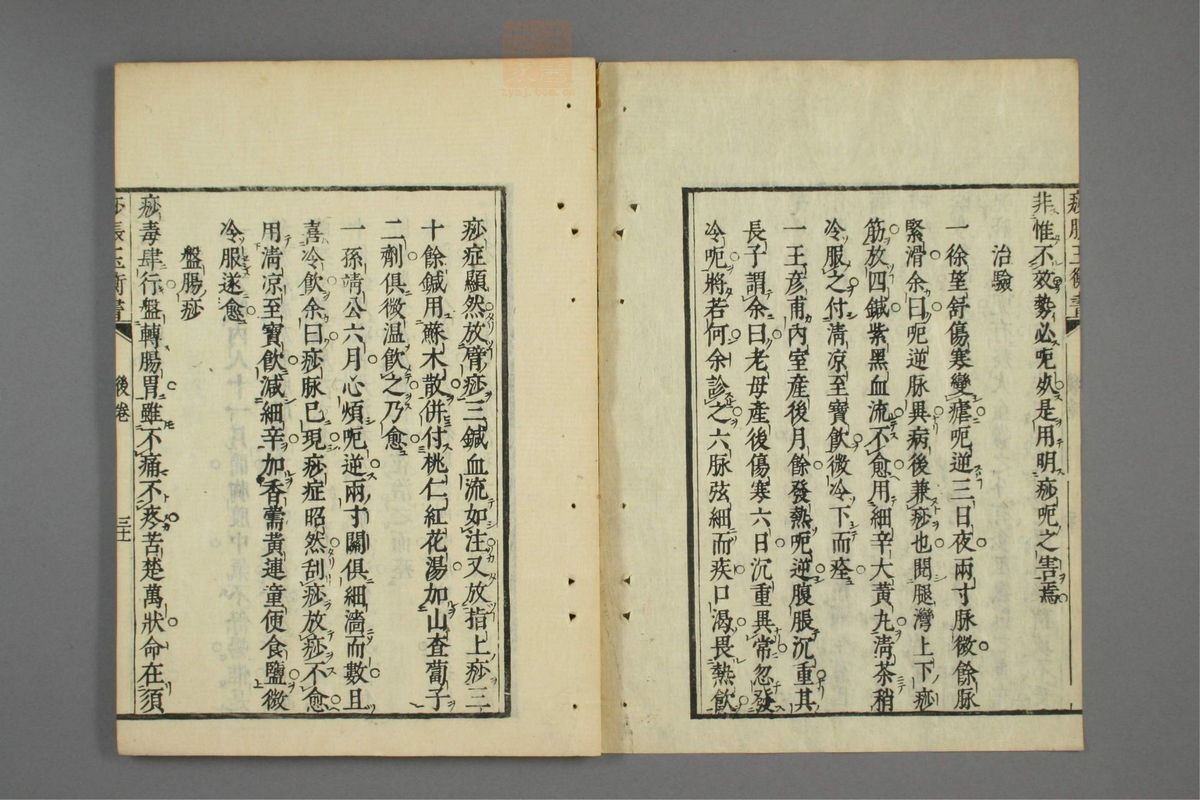 非惟不效勢必呃欤是用明痧呃之害焉
治驗
一徐堃舒傷寒變瘧呃逆三日夜兩寸脉微餘脉
緊滑余曰呃逆脉異病後兼痧也閱腿灣上下痧
筋放四鍼紫黑血流不愈用細辛大黃丸淸茶稍
冷服之付淸凉至寶飲微冷下而痊
一王彦甫內室產後月餘發熱呃逆腹脹沉重其
長子謂余曰老母產後傷寒六日沉重異常忽發
冷呃將若何余診之六脉弦細而疾口渴畏熱飲
痧症顯然放臂痧三鍼血流如注又放指上痧三
十餘鍼用蘇木散併付桃仁紅花湯加山查蔔子
二劑俱微温飲之乃愈
一孫靖公六月心煩呃逆兩寸關俱細濇而數且
喜冷飲余曰痧脉已現痧症昭然刮痧放痧不愈
用淸凉至寶飲减細辛加香薷黃連童便食鹽微
冷服遂愈
盤腸痧
痧毒肆行盤轉腸胃雖不痛不疼苦楚萬狀命在須
後卷